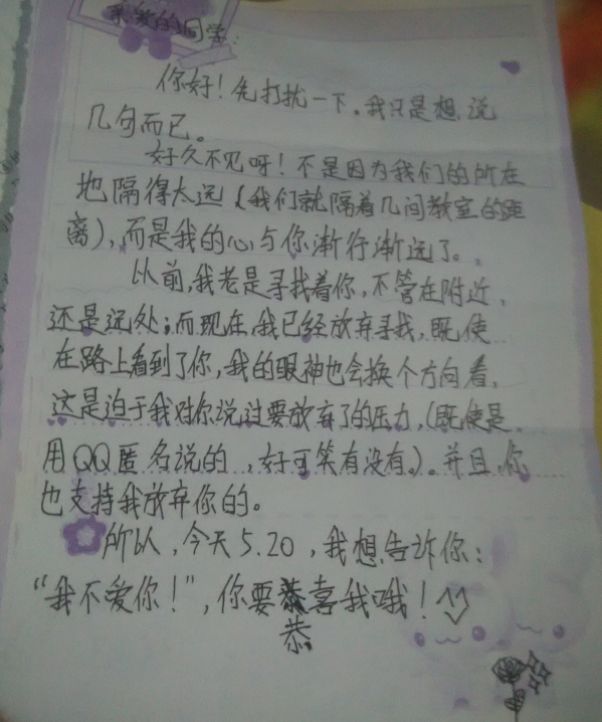 亲爱的同学：
你好！先打扰一下，我只是想说
几句而已。
好久不见呀！不是因为我们的所在
地隔得太远（我们就隔着几间教室的距
离），而是我的心与你渐行渐远了。
以前，我老是寻找着你，不管在附近、
还是远处；而现在，我已经放弃寻找，既使
在路上看到了你，我的眼神也会换个方向看，
这是迫于我对你说过要放弃了的压力，（既使是
用QQ匿名说的…，好可笑有没有。）。并且，你
也支持我放弃你的。
所以，今天5.20，我想告诉你：
“我不爱你！”，你要恭喜我哦！^^
恭